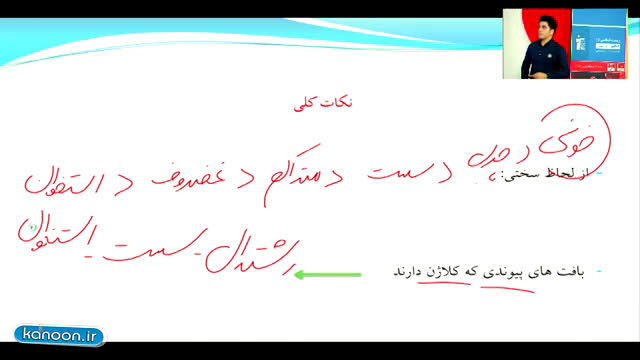 نکات کلی
از لحاظ سختی:
خونی > چربی > سست > متراکم > غضروف > استخوان
بافت های پیوندی که کلاژن دارند
رشته‌ای - سست - استخوان
kanoon.ir